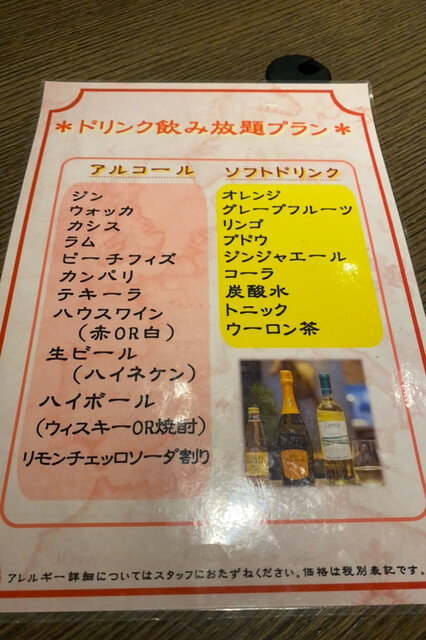 ＊ドリンク飲み放題プラン＊
アルコール
ジン
ウォッカ
カシス
ラム
ピーチフィズ
カンパリ
テキーラ
ハウスワイン
（赤OR白）
生ビール
（ハイネケン）
ハイボール
（ウィスキーOR焼酎）
リモンチェッロソーダ割り
ソフトドリンク
オレンジ
グレープフルーツ
リンゴ
ブドウ
ジンジャエール
コーラ
炭酸水
トニック
ウーロン茶
アレルギー詳細についてはスタッフにおたずねください。価格は税別表記です。